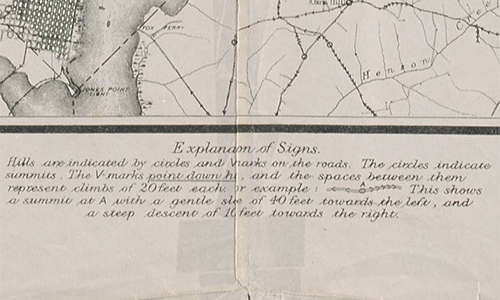 FOX FERRY
JONES POINT
LIGHT
Henson
Creek
Explanaon of Signs.
Hills are indicated by circles and V marks on the roads. The circles indicate
summits. The V marks point down hi, and the spaces between them
represent climbs of 20 feet each or example: A This shows
a summit at A with a gentle slee of 40 feet towards the left, and
a steep descent of 10 feet towards the right.